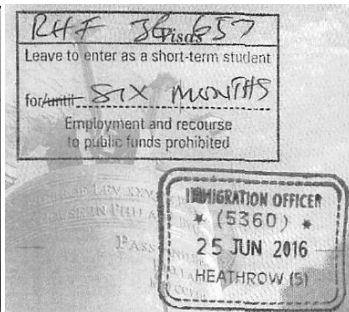 RHF 36 657
Leave to enter as a short-term student
for/until SIX MONTHS
Employment and recourse
to public funds prohibited
IMMIGRATION OFFICER
* (5360) *
25 JUN 2016
HEATHROW (5)